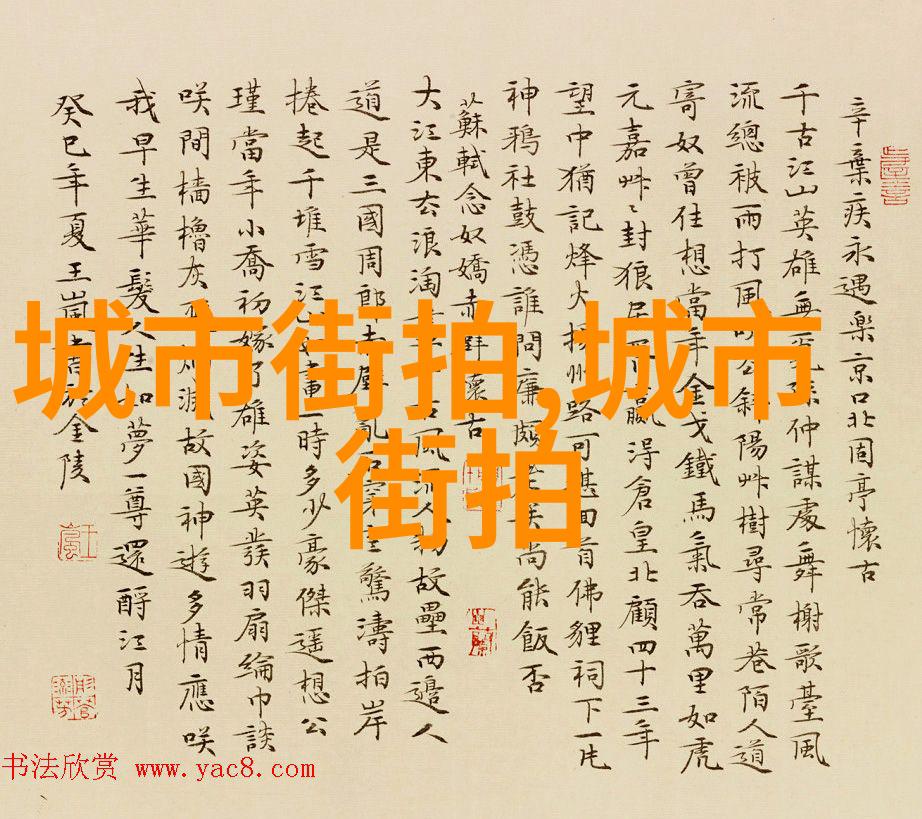 辛棄疾永遇楽京口北固亭懷古
千古江山英雄無仲謀處舞榭歌臺風
流總被雨打風斜陽艸樹尋常巷陌人道
寄奴曾住想當年金戈鐵馬氣吞萬里如虎
元嘉艸〻封狼居贏淂倉皇北顧四十三年
望中猶記烽火揚州路可堪回首佛貍祠下一片
神鴉社鼓憑誰問廉頗矣尚能飯否
蘇軾念奴嬌赤壁懷古
大江東去浪淘風流人物故壘西邊人
道是三國周郎亂石驚濤拍岸
捲起千堆雪江如畫一時多少豪傑遥想公
瑾當年小喬初嫁了雄姿英發羽扇綸巾談
咲間檣櫓灰滅故國神遊多情應咲
我早生華髮人生如夢一尊還酹江月
癸巳年夏王嵐書於金陵
城市街拍,城市
街拍
书法欣赏 www.yac8.com